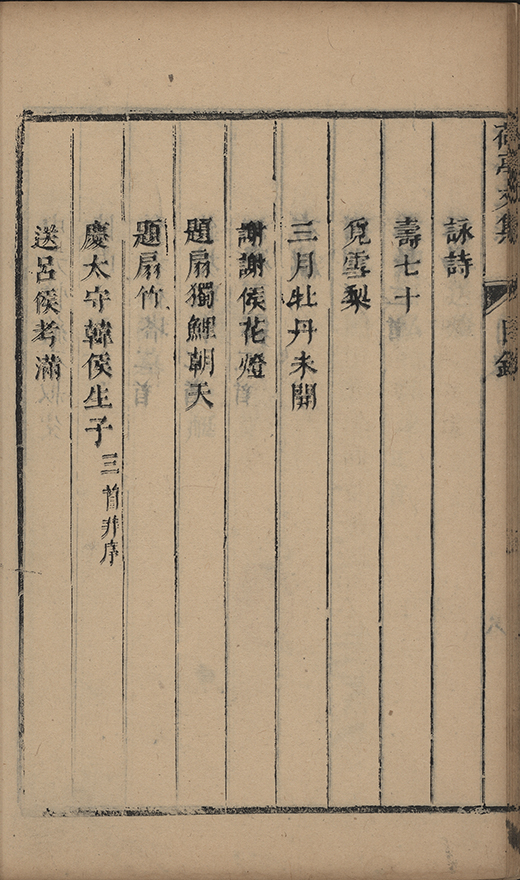 亭文集 目錄
詠詩
壽七十
覓雪梨
三月牡丹未開
謝謝侯花燈
題扇獨鯉朝天
題扇竹
慶太守韓侯生子三首并序
送呂侯考滿